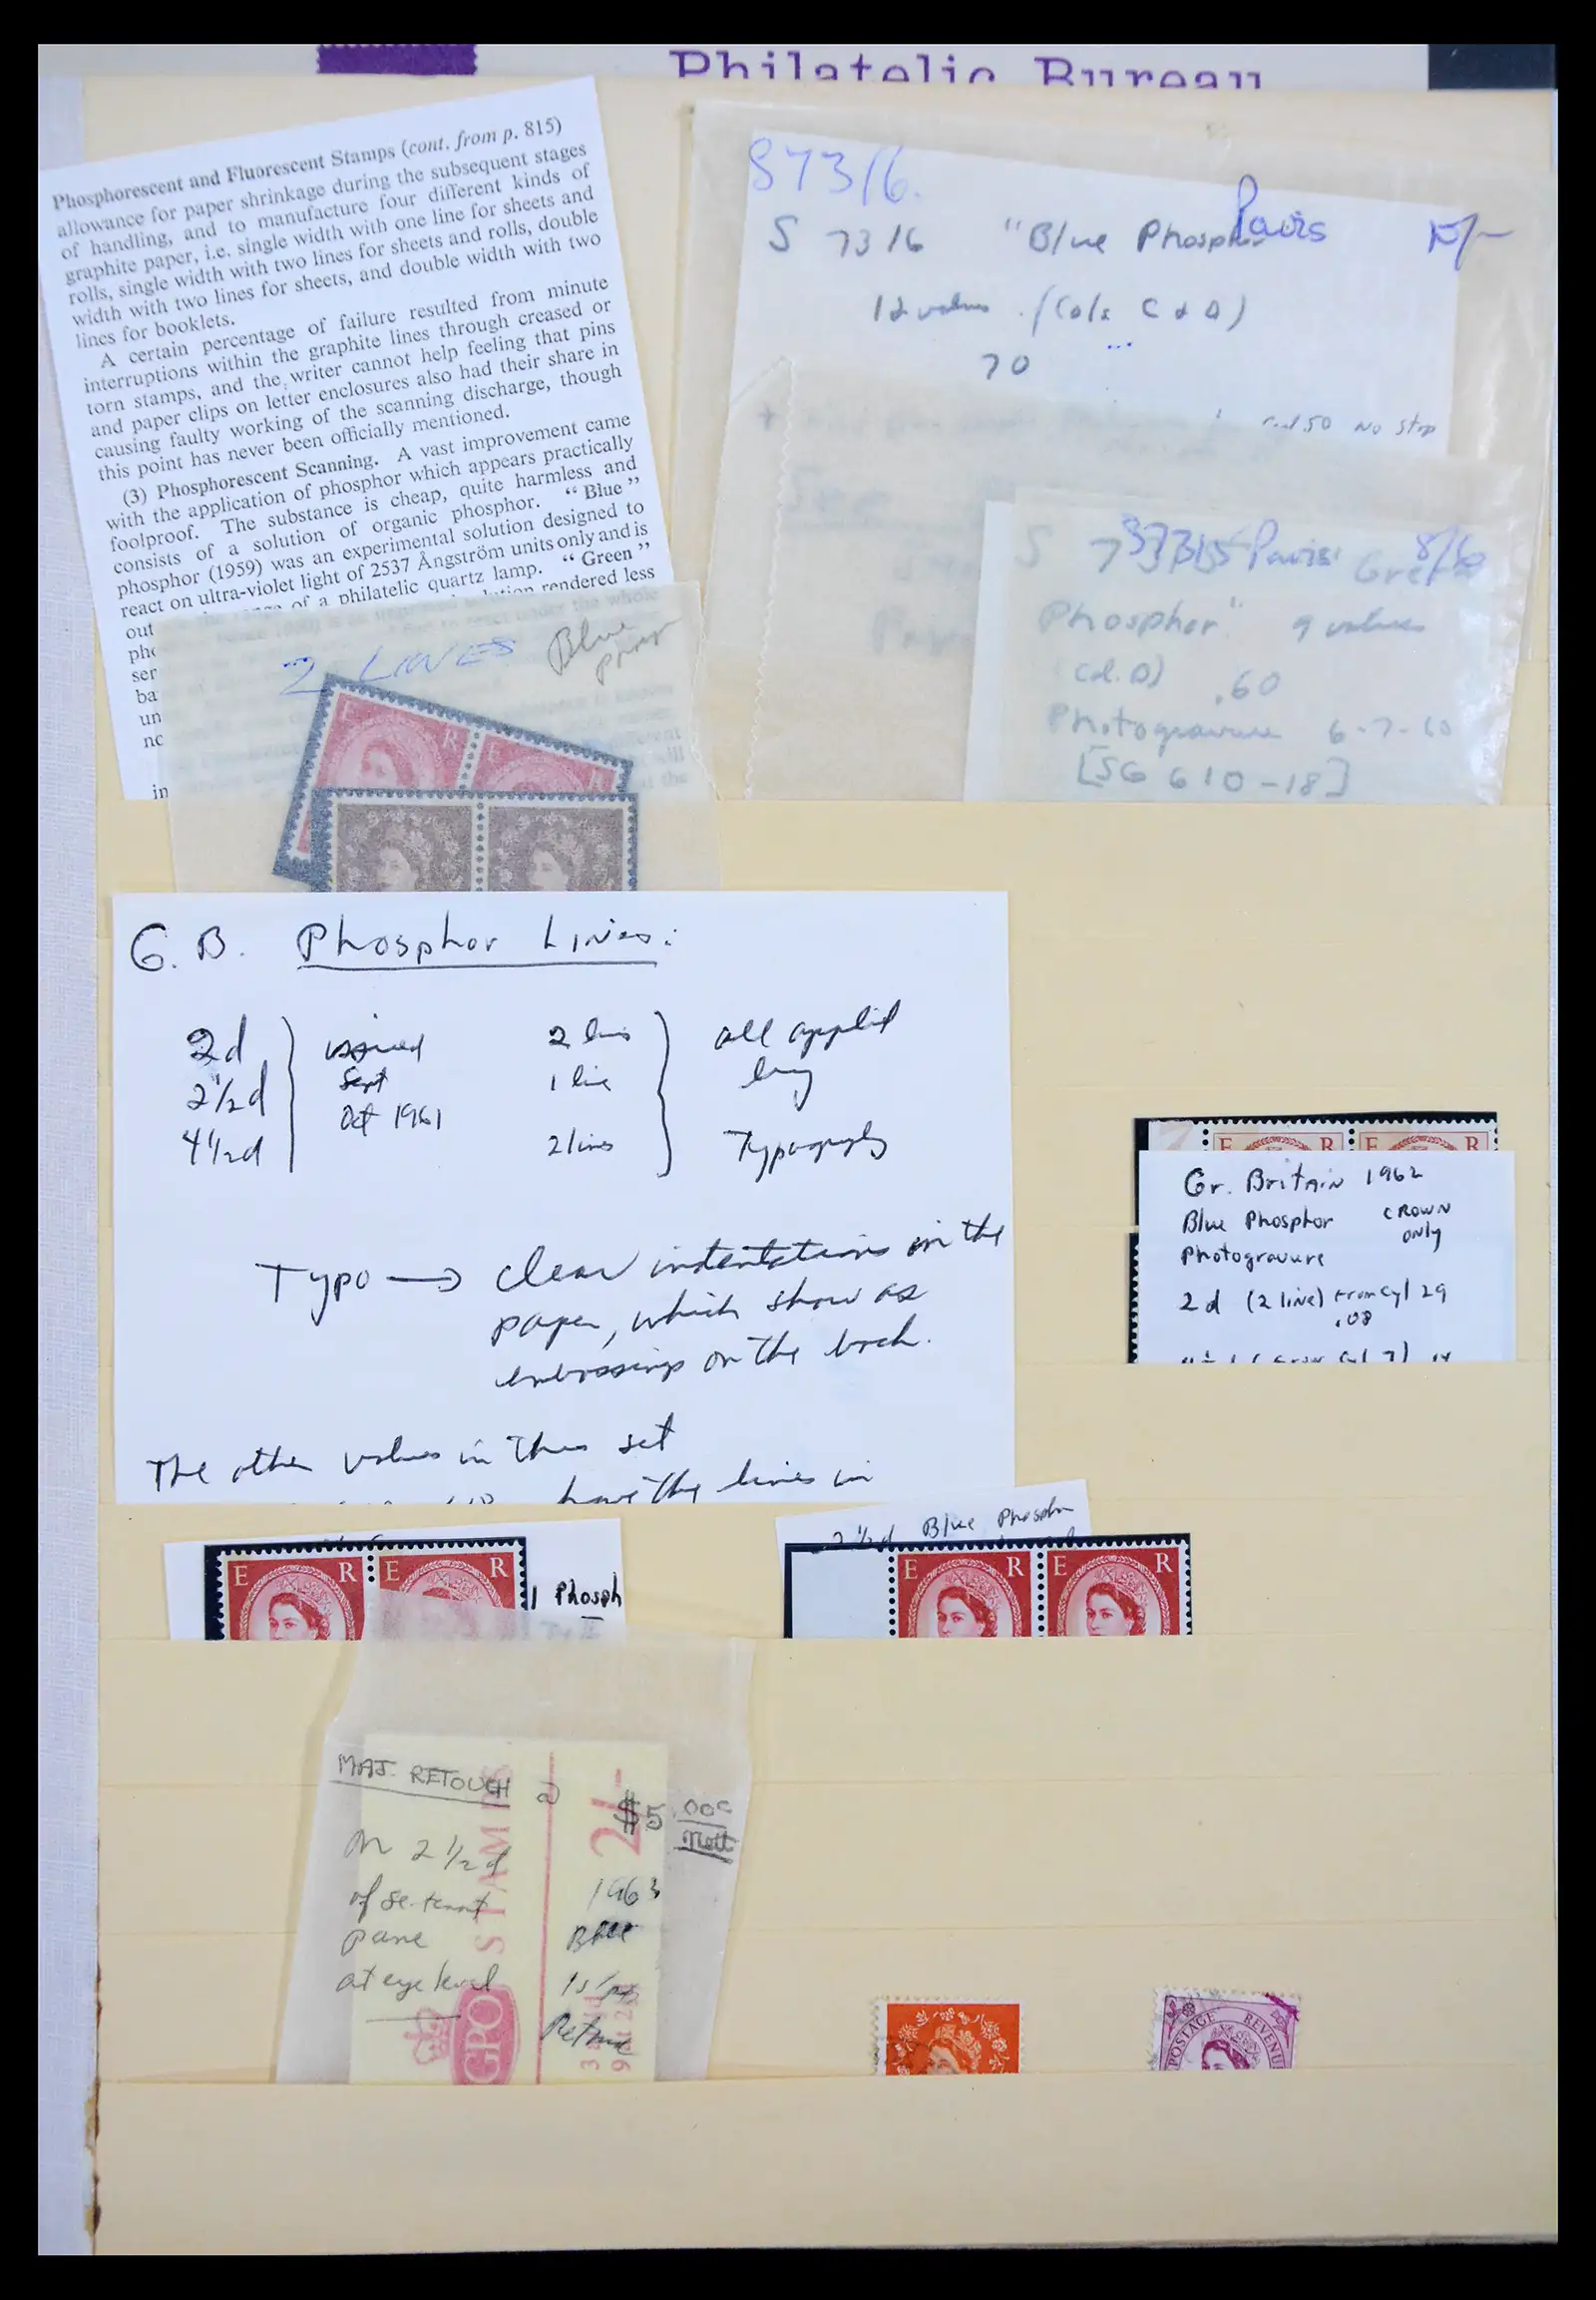 Philatelic Bureau
Phosphorescent and Fluorescent Stamps (cont. from p. 815)
allowance for paper shrinkage during the subsequent stages
of handling, and to manufacture four different kinds of
graphite paper, i.e. single width with one line for sheets and
rolls, single width with two lines for sheets and rolls, double
width with two lines for sheets, and double width with two
lines for booklets.
A certain percentage of failure resulted from minute
interruptions within the graphite lines through creased or
torn stamps, and the writer cannot help feeling that pins
and paper clips on letter enclosures also had their share in
causing faulty working of the scanning discharge, though
this point has never been officially mentioned.
(3) Phosphorescent Scanning. A vast improvement came
with the application of phosphor which appears practically
foolproof. The substance is cheap, quite harmless and
consists of a solution of organic phosphor. "Blue"
phosphor (1959) was an experimental solution designed to
react on ultra-violet light of 2537 Ångström units only and is
out of a philatelic quartz lamp. "Green"
pho rendered less
ser
ba
un
no
in
S7316.
Paris
S 7316 "Blue Phosphor
12 values (Cols C & D)
70
No Stop
S 7
S7315 Paris
8/60
Phosphor" 9 values
(Col. D) .60
Photogravure 6-7-60
[SG 610-18]
2 LINES Blue
E R E
G.B. Phosphor Lines:
2d issued 2 lines all applied
2½d Sept 1 line by
Oct 1961
4½d 2 lines Typography
Typo → clear indentations in the
paper, which show as
embossings on the back.
The other values in this set
have the lines in
E R E R
Gr. Britain 1962
Blue Phosphor CROWN
only
Photogravure
2d (2 line) from Cyl 29
.08
E R E R
1 Phosph
2½d Blue Phosphor
E R E R
MAJ. RETOUCH a $5.00
Nett
on 2½d
of se-tenant 1963
pane
at eye level
STAMPS
2/-
GPO
POSTAGE REVENUE